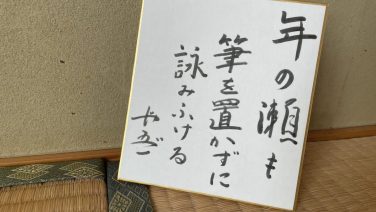 年の瀬も
筆を置かずに
詠みふける